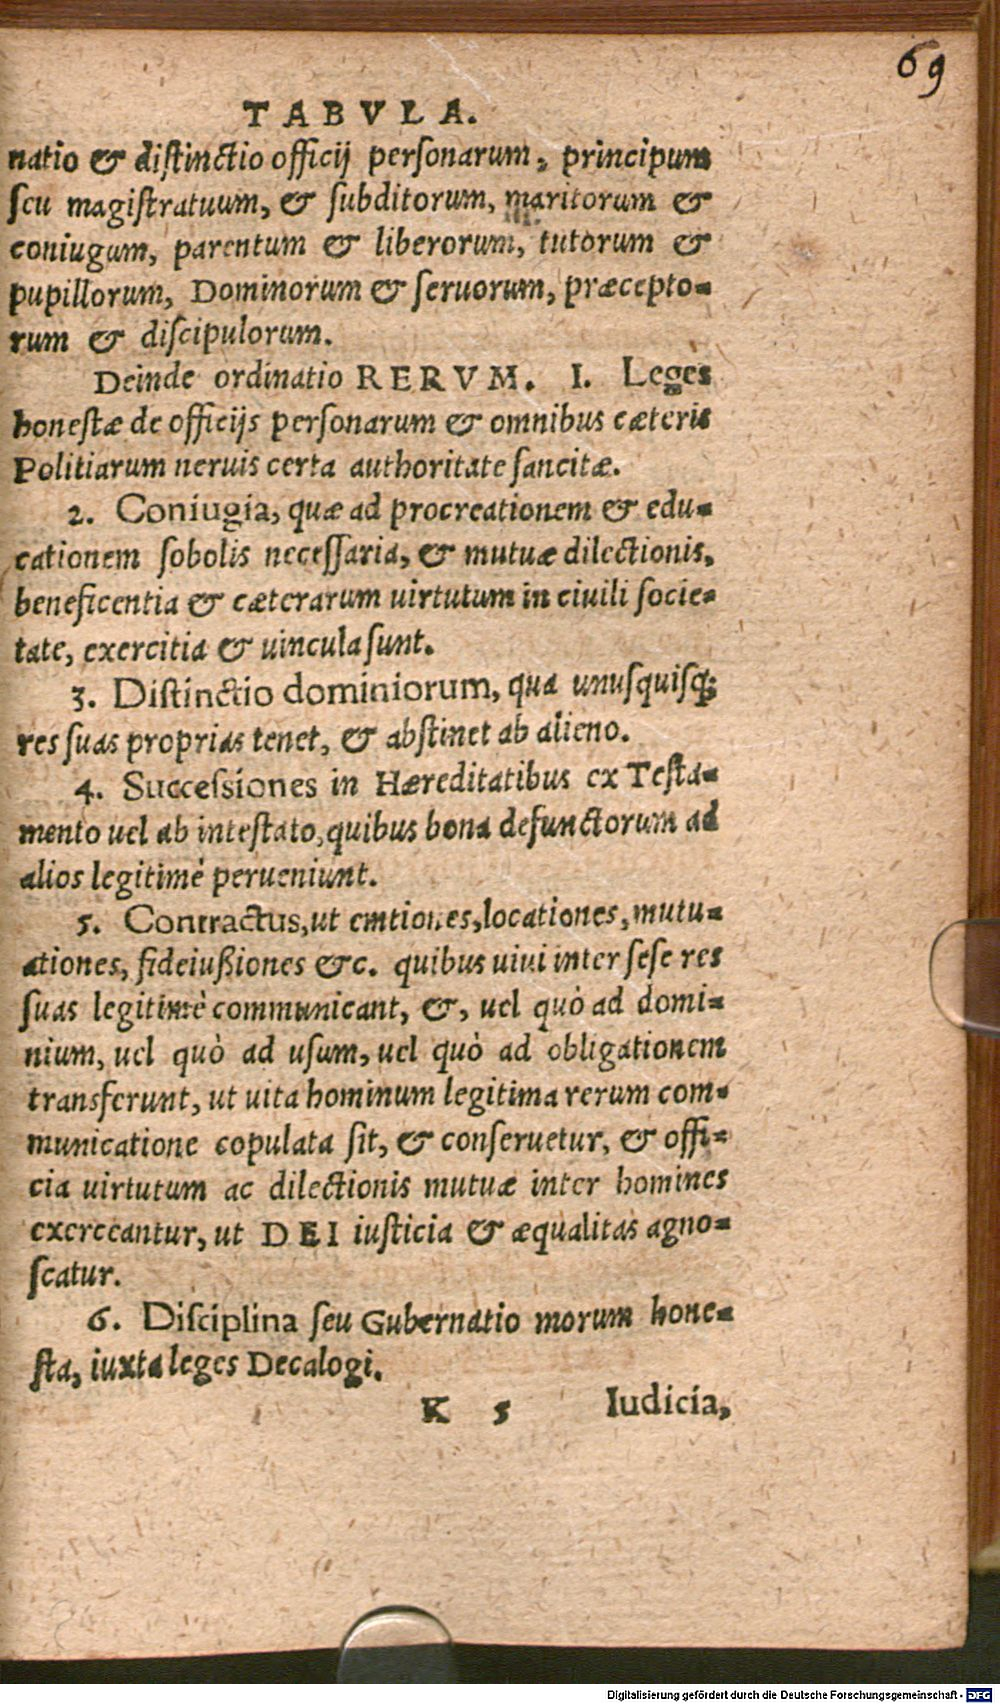 69
TABVLA.
natio & distinctio officij personarum, principum
seu magistratuum, & subditorum, maritorum &
coniugum, parentum & liberorum, tutorum &
pupillorum, Dominorum & seruorum, præcepto-
rum & discipulorum.
Deinde ordinatio RERVM. 1. Leges
honestæ de officijs personarum & omnibus cæteris
Politiarum neruis certa authoritate sancitæ.
2. Coniugia, quæ ad procreationem & edu-
cationem sobolis necessaria, & mutuæ dilectionis,
beneficentia & cæterarum uirtutum in ciuili socie-
tate, exercitia & uincula sunt.
3. Distinctio dominiorum, qua unusquisq;
res suas proprias tenet, & abstinet ab alieno.
4. Successiones in Hæreditatibus ex Testa-
mento uel ab intestato, quibus bona defunctorum ad
alios legitimè perueniunt.
5. Contractus, ut emtiones, locationes, mutu-
ationes, fideiußiones &c. quibus uiui inter sese res
suas legitimè communicant, &, uel quò ad domi-
nium, uel quò ad usum, uel quò ad obligationem
transferunt, ut uita hominum legitima rerum com-
municatione copulata sit, & conseruetur, & offi-
cia uirtutum ac dilectionis mutuæ inter homines
exerceantur, ut DEI iusticia & æqualitas agno-
scatur.
6. Disciplina seu Gubernatio morum hone-
sta, iuxta leges Decalogi.
K 5 Iudicia,
Digitalisierung gefördert durch die Deutsche Forschungsgemeinschaft - DFG